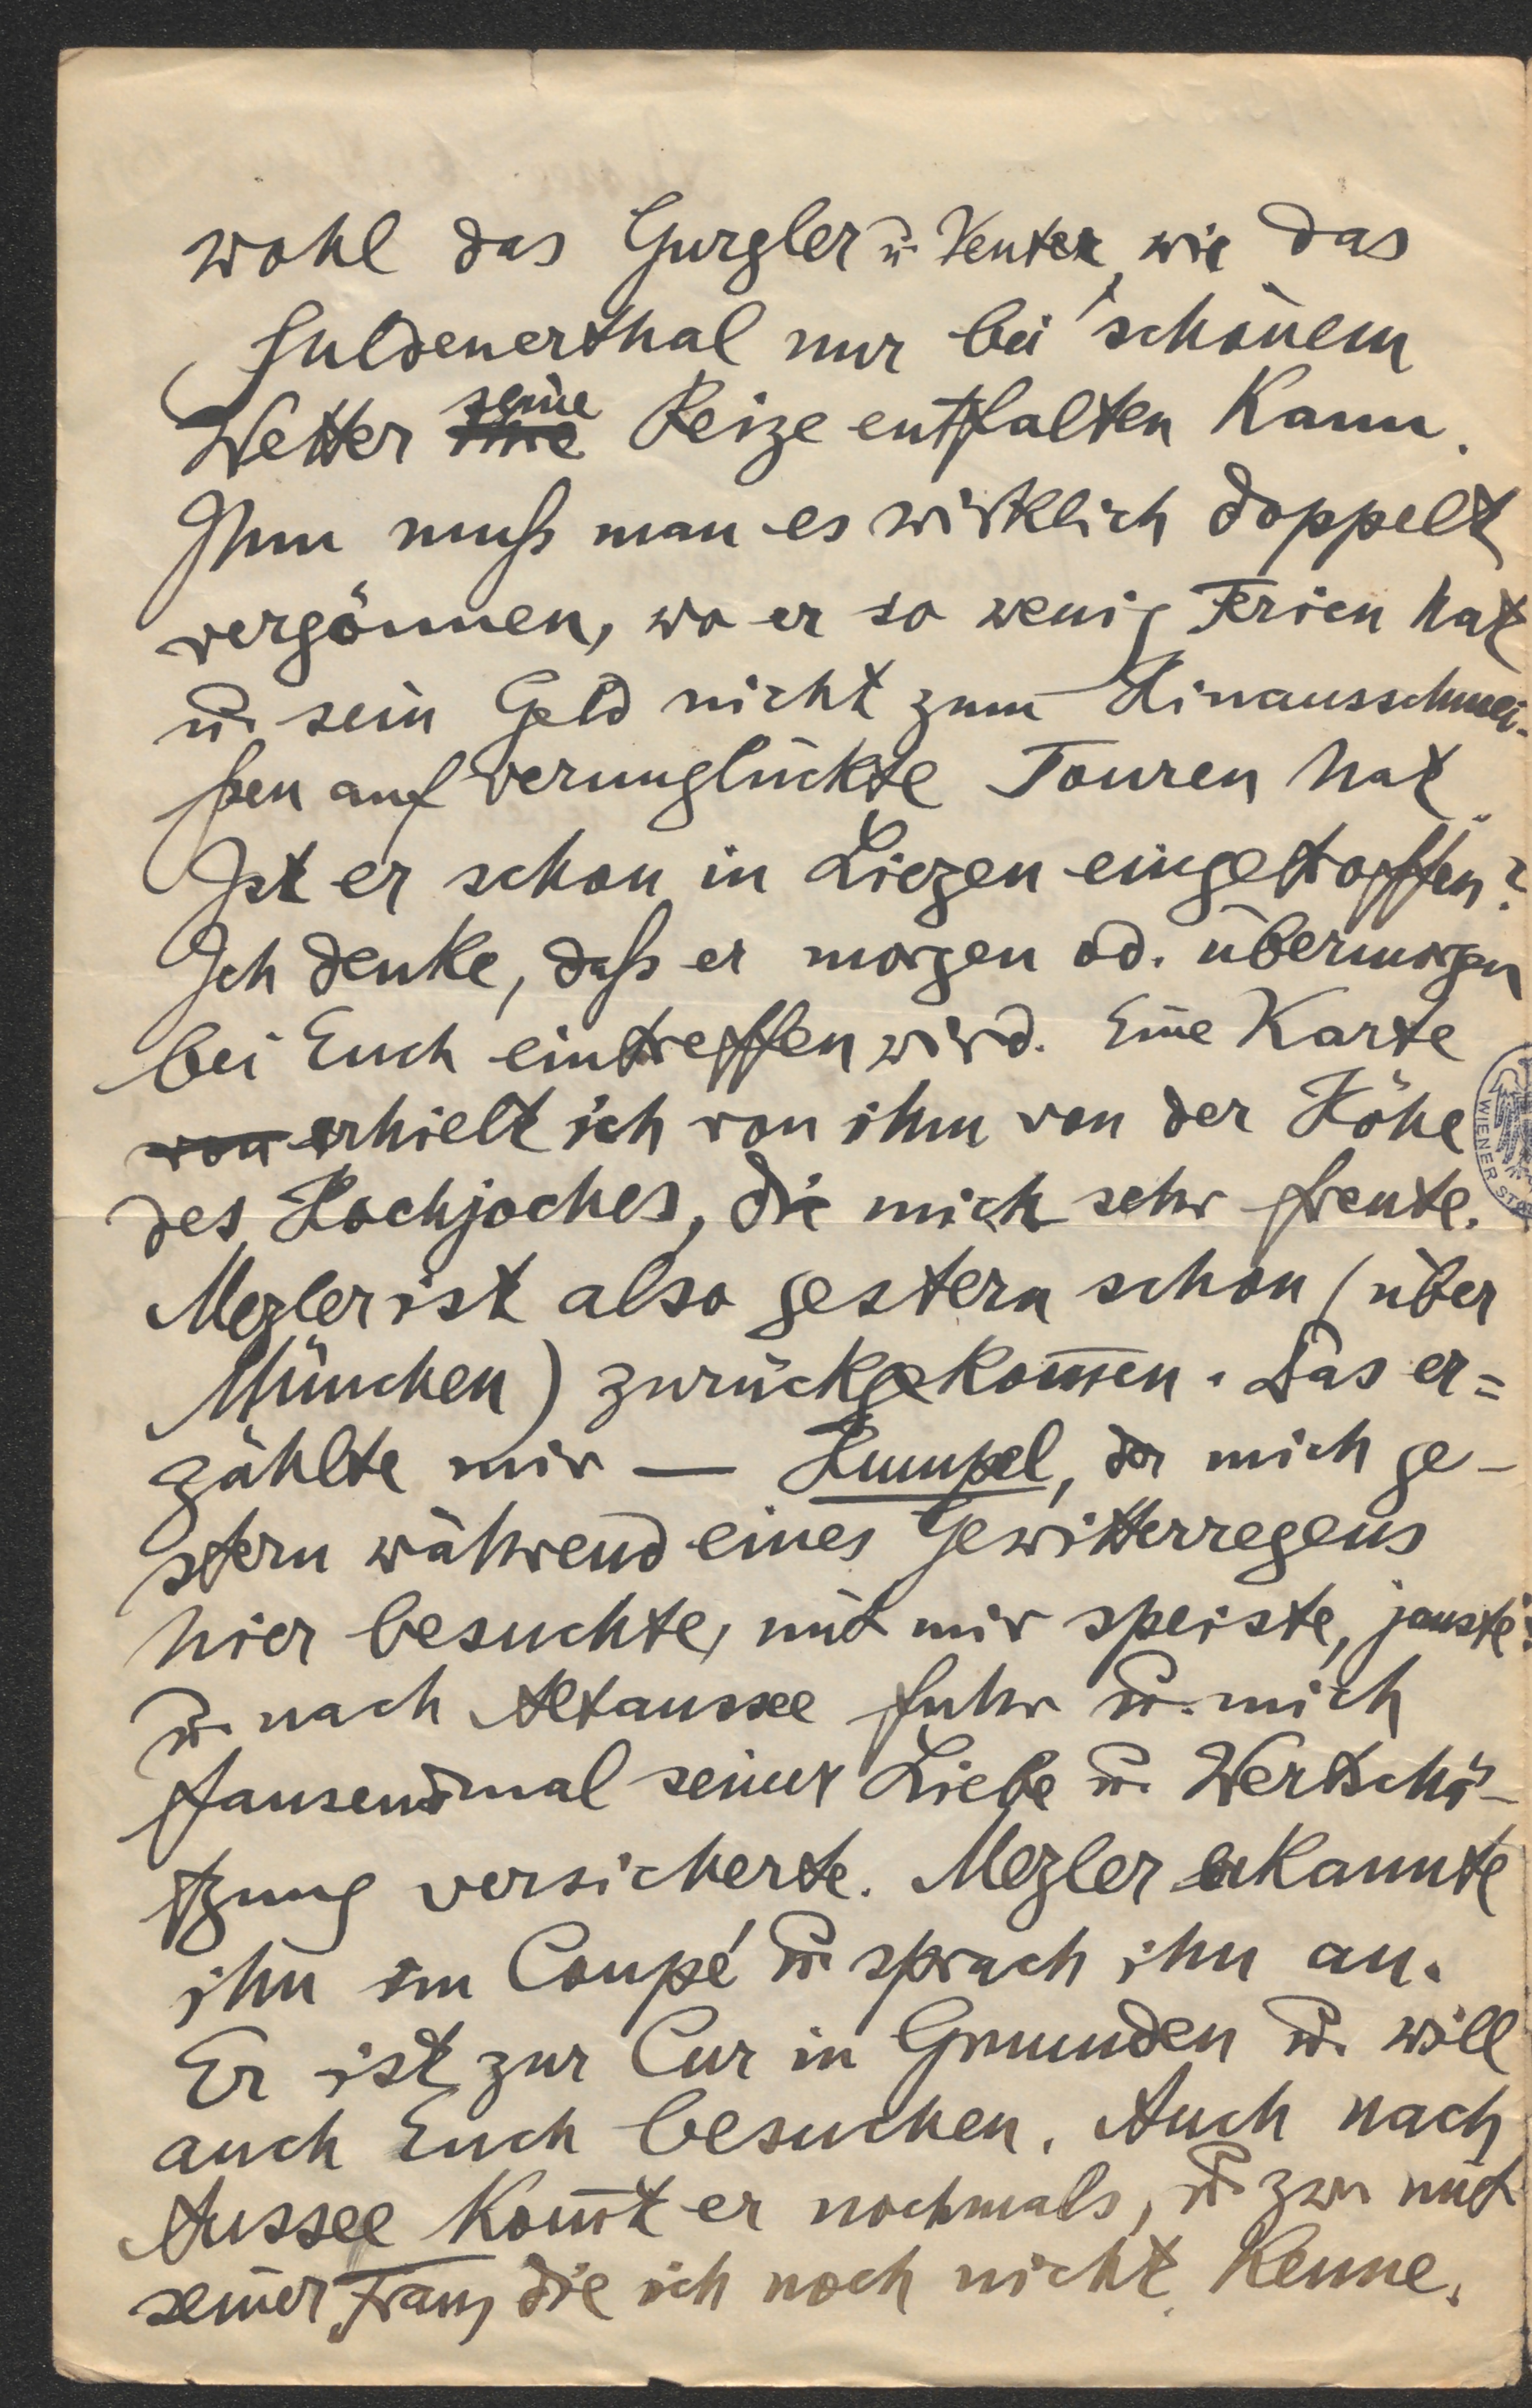 wohl das Gurgler u. Venter, wie das
Suldenerthal nur bei schönem
Wetter ihre seine Reize entfalten kann.
Ihm muß man es wirklich doppelt
vergönnen, wo er so wenig Ferien hat
u. sein Geld nicht zum Hinausschmei-
ßen auf verunglückte Touren hat.
Ist er schon in Liezen eingetroffen?
Ich denke, daß er morgen od. übermorgen
bei Euch eintreffen wird. Eine Karte
von erhielt ich von ihm von der Höhe
des Hochjoches, die mich sehr freute.
Mezler ist also gestern schon (über
München) zurückgekom̄en. Das er=
zählte mir — Humpel, der mich ge-
stern während eines Gewitterregens
hier besuchte, mit mir speiste, jauste
u. nach Altaussee fuhr u. mich
tausendmal seiner Liebe u. Wertschä-
tzung versicherte. Mezler erkannte
ihn im Coupé u. sprach ihn an.
Er ist zur Cur in Gmunden u. will
auch Euch besuchen. Auch nach
Aussee kom̄t er nochmals, u. zw. mit
seiner Frau, die ich noch nicht kenne.
WIENER STA